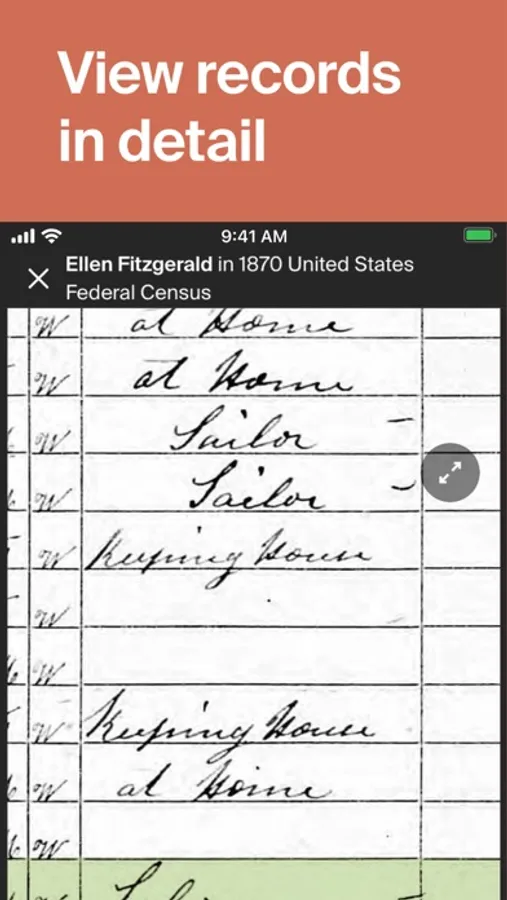 View records
in detail
9:41 AM
Ellen Fitzgerald in 1870 United States
Federal Census
W at Home
W at Home
W Sailor –
W Sailor –
W Keeping House
W
W
W Keeping House
W at Home
W